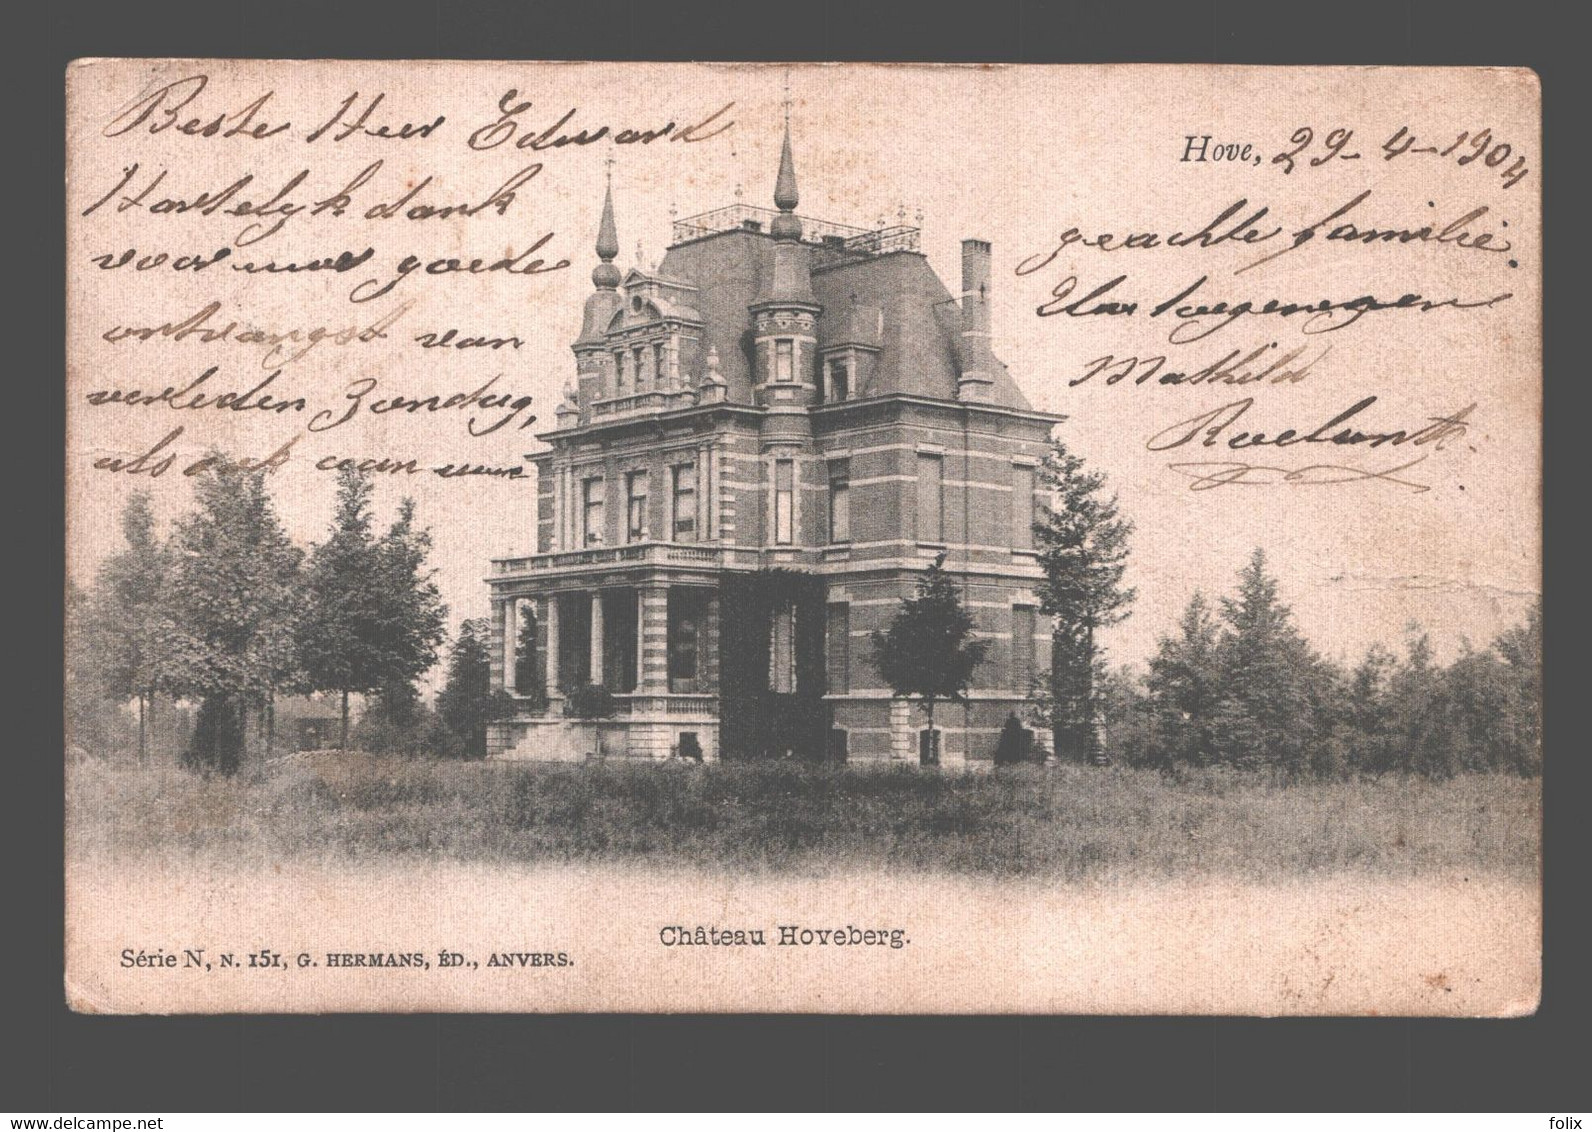 Beste Heer Edward
Hartelyk dank
voor uwe goede
ontvangst van
verleden Zondag,
als ook aan uwe
Hove, 29-4-1904
geachte familie.
Uw toegenegen
Mathild
Roelants.
Château Hoveberg.
Série N, N. 151, G. HERMANS, ÉD., ANVERS.
www.delcampe.net
folix